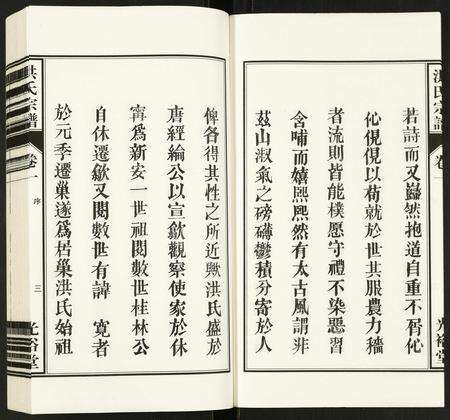 洪氏宗譜
卷一
光裕堂
若詩而又巋然抱道自重不屑佗
佗俔俔以苟就於世其服農力穡
者流則皆能樸愿守禮不染惡習
含哺而嬉熙熙然有太古風謂非
茲山淑氣之磅礴鬱積分寄於人
俾各得其性之所近歟洪氏盛於
唐經綸公以宣歙觀察使家於休
甯為新安一世祖閱數世桂林公
自休遷歙又閱數世有諱 寬者
於元季遷巢遂為居巢洪氏始祖
洪氏宗譜
卷一
序
三
光裕堂